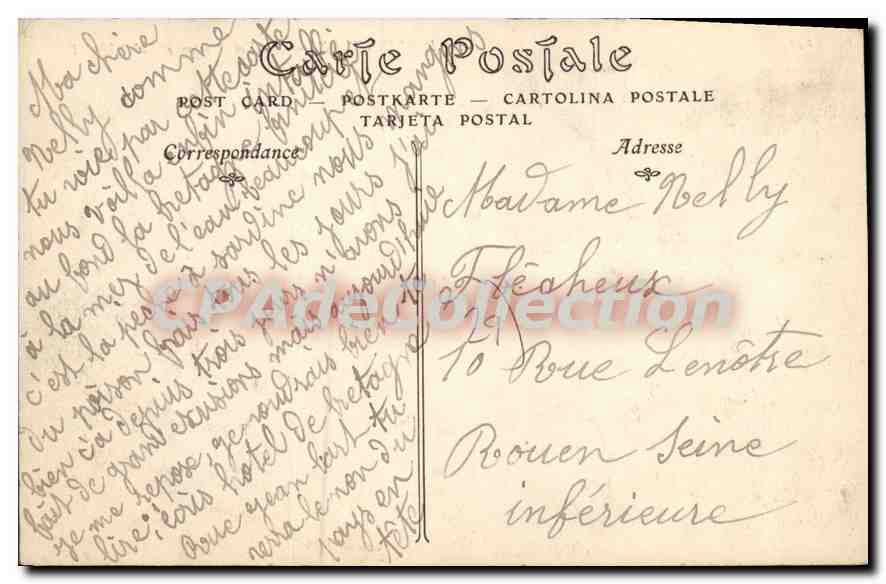 Carte Postale
POST CARD — POSTKARTE — CARTOLINA POSTALE
TARJETA POSTAL
Correspondance
Ma chère
Nelly comme
tu vois par cette carte
nous voilà bien installé
au fond la bretagne
à la mer de l'eau beaucoup
c'est la peche a sardine nous mangos
du poison frais tous les jours j'ai
bien ça depuis trois jours n'avons
fait de grand exursions mais aujourd'hui
je me repose, je voudrais bien te
lire; écris hotel de bretagne
Rue jean bart tu
verra le non du
pays en
tête
Adresse
Madame Nelly
Flécheux
10 Rue Lenôtre
Rouen Seine
inférieure
CPAdeCollection